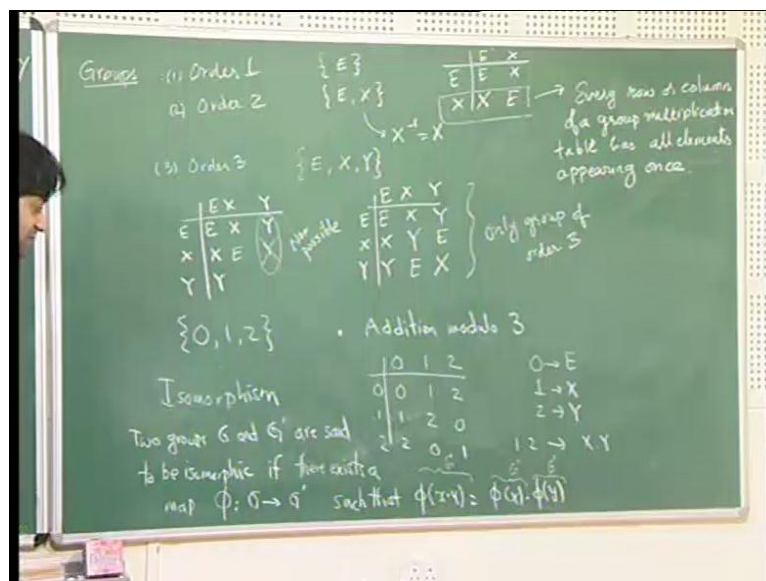 Groups (1) Order 1 {E}
(2) Order 2 {E, X}
X⁻¹ = X
E X
E E X
X X E
→ Every row or column
of a group multiplication
table has all elements
appearing once.
(3) Order 3 {E, X, Y}
E X Y
E E X Y
X X E Y
Y Y
Not possible
E X Y
E E X Y
X X Y E
Y Y E X
Only group of
order 3
{0, 1, 2} • Addition modulo 3
0 1 2
0 0 1 2
1 1 2 0
2 2 0 1
0→E
1→X
2→Y
1 2 → X.Y
Isomorphism
Two groups G and G' are said
to be isomorphic if there exists a
map ϕ: G→G' such that ϕ(x·y) = ϕ(x)·ϕ(y)
G G' G'